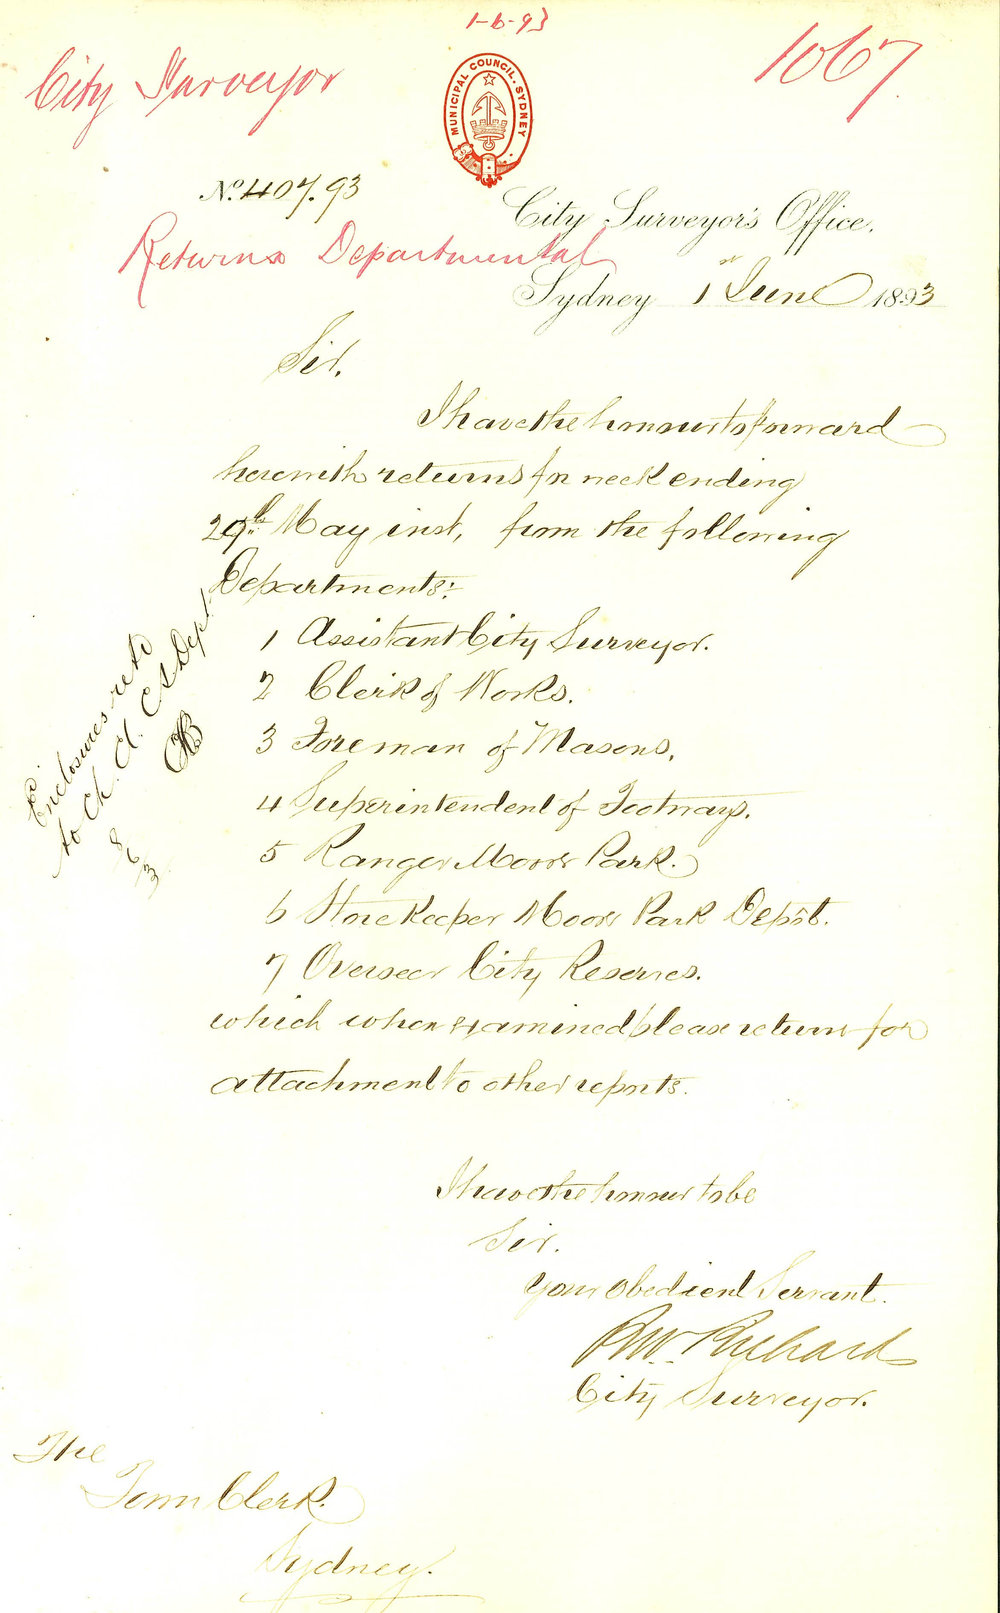 1-6-93
City Surveyor
1067.
MUNICIPAL COUNCIL. SYDNEY
No. 407.93
City Surveyor's Office.
Returns Departmental
Sydney 1st June 1893
Sir,
I have the honour to forward
herewith returns for week ending
29th May inst, from the following
Departments:
1 Assistant City Surveyor.
2 Clerk of Works.
3 Foreman of Masons.
4 Superintendent of Footways.
5 Ranger Moore Park.
6 Storekeeper Moore Park Depôt.
7 Overseer City Reserves.
which when examined please return for
attachment to other reports.
Enclosures retd
to Ch. Cl. CS Dept
8/6/3
I have the honour to be
Sir.
Your obedient Servant.
RW. Richards
City Surveyor.
The
Town Clerk.
Sydney.